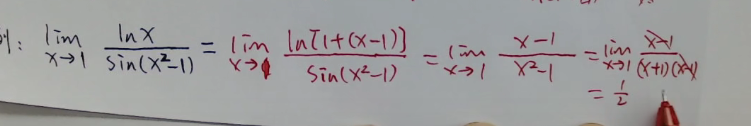 例: lim x→1 lnx / sin(x²-1) = lim x→1 ln[1+(x-1)] / sin(x²-1) = lim x→1 x-1 / x²-1 = lim x→1 x-1 / (x+1)(x-1)
= 1/2